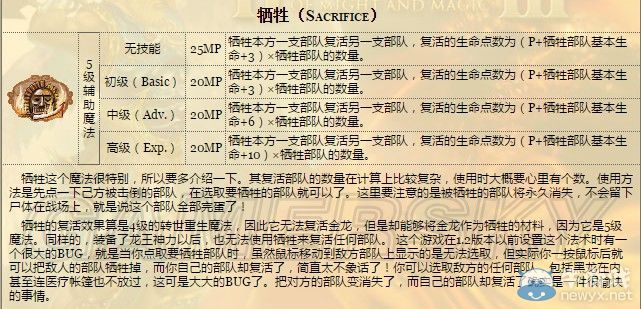 牺牲（SACRIFICE）
5级辅助魔法
无技能 25MP 牺牲本方一支部队复活另一支部队，复活的生命点数为（P+牺牲部队基本生
命+3）×牺牲部队的数量。
初级（Basic） 20MP 牺牲本方一支部队复活另一支部队，复活的生命点数为（P+牺牲部队基本生
命+3）×牺牲部队的数量。
中级（Adv.） 20MP 牺牲本方一支部队复活另一支部队，复活的生命点数为（P+牺牲部队基本生
命+6）×牺牲部队的数量。
高级（Exp.） 20MP 牺牲本方一支部队复活另一支部队，复活的生命点数为（P+牺牲部队基本生
命+10）×牺牲部队的数量。
牺牲这个魔法很特别，所以要多介绍一下。其复活部队的数量在计算上比较复杂，使用时大概要心里有个数。使用方
法是先点一下己方被击倒的部队，在选取要牺牲的部队就可以了。这里要注意的是被牺牲的部队将永久消失，不会留下
尸体在战场上，就是说这个部队全部完蛋了！
牺牲的复活效果算是4级的转世重生魔法，因此它无法复活金龙，但是却能够将金龙作为牺牲的材料，因为它是5级
魔法。同样的，装备了龙王神力以后，也无法使用牺牲来复活任何部队。这个游戏在1.2版本以前设置这个法术时有一
个很大的BUG，就是当你点取要牺牲部队时，虽然鼠标移动到敌方部队上显示的是无法选取，但实际你一按鼠标后就
可以把敌人的部队牺牲掉，而你自己的部队却复活了，简直太不象话了！你可以选取敌方的任何部队，包括黑龙在内，
甚至连医疗帐篷也不放过，这可是大大的BUG了。把对方的部队变消失了，而自己的部队却复活了是一件很愉快
的事情。
newyx.net